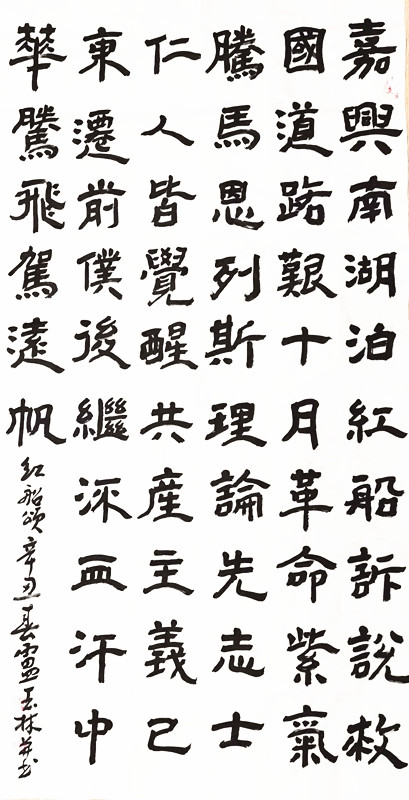 嘉興南湖泊紅船訴說救
國道路艱十月革命紫氣
騰馬恩列斯理論先志士
仁人皆覺醒共産主義已
東遷前僕後繼流血汗中
華騰飛駕遠帆
红船颂辛丑春盧玉林并书